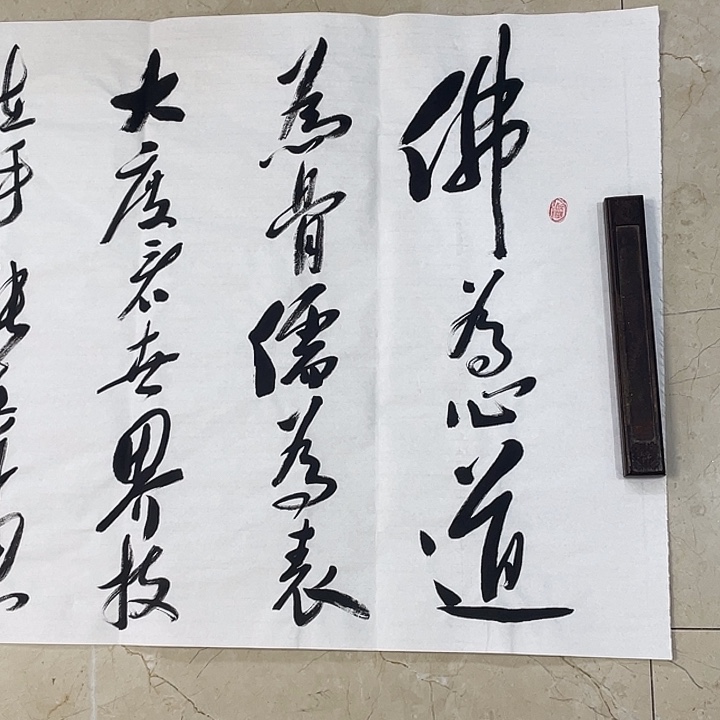 佛為心道
為骨儒為表
大度看世界技
在手